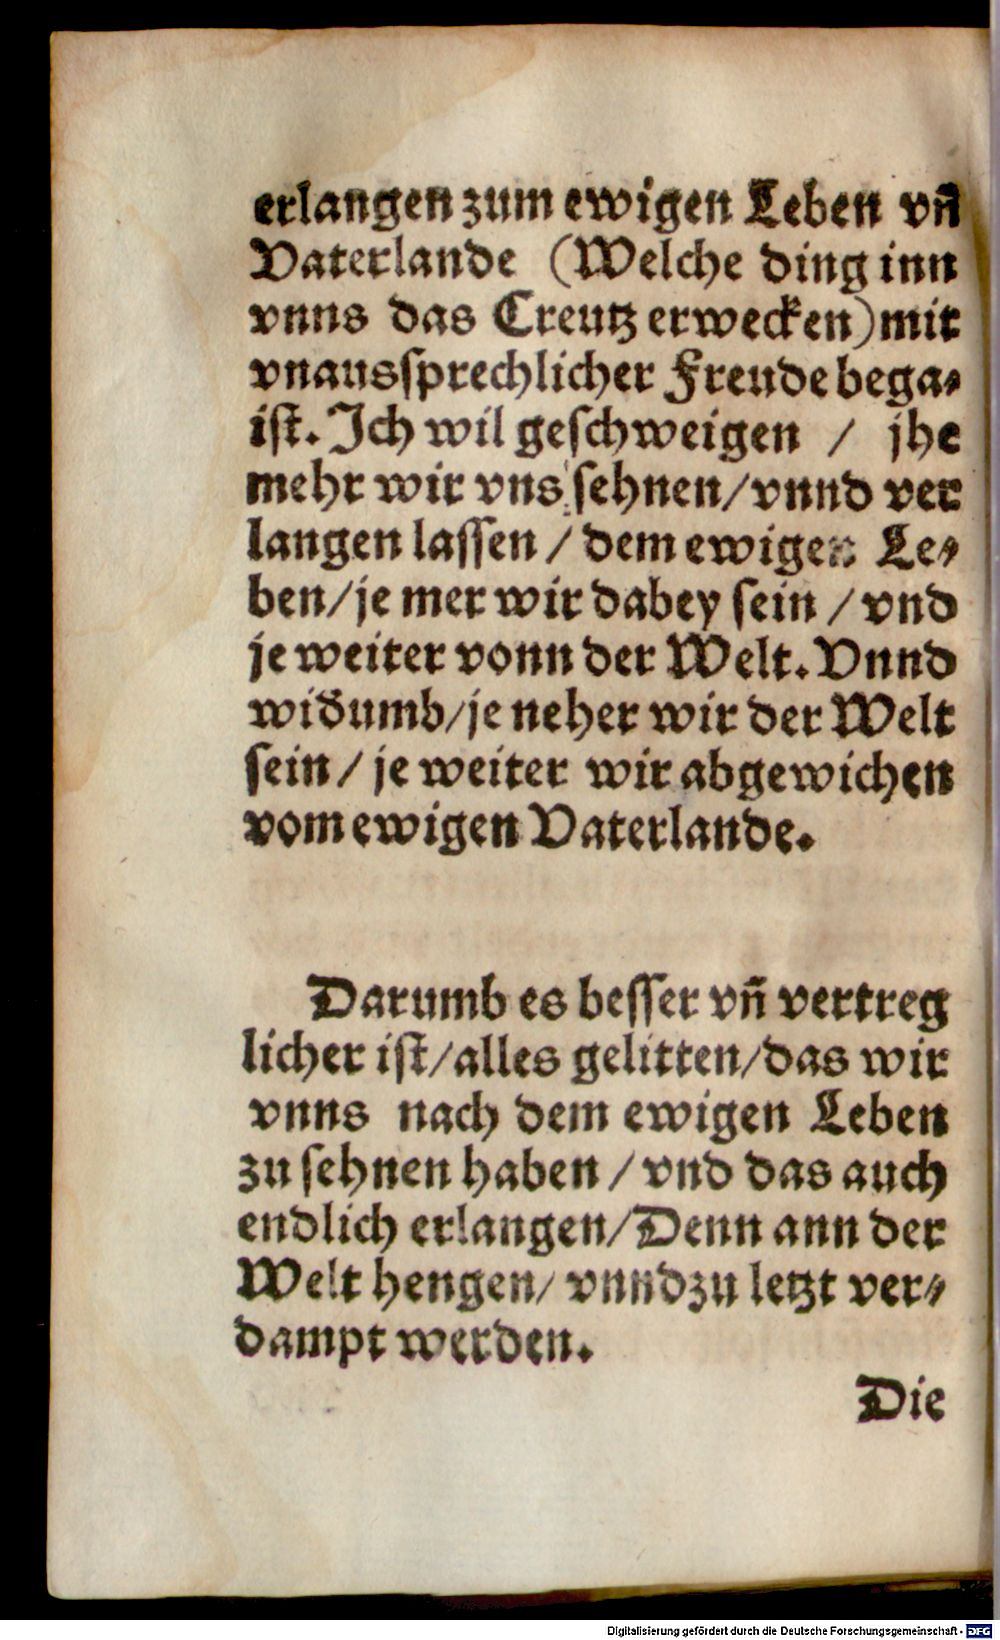 erlangen zum ewigen Leben vn̄
Vaterlande (Welche ding inn
vnns das Creutz erwecken) mit
vnaussprechlicher Freude bega⸗
ist. Ich wil geschweigen / jhe
mehr wir vns sehnen / vnnd ver
langen lassen / dem ewigen Le⸗
ben / je mer wir dabey sein / vnd
je weiter vonn der Welt. Vnnd
widumb / je neher wir der Welt
sein / je weiter wir abgewichen
vom ewigen Vaterlande.
Darumb es besser vn̄ vertreg
licher ist / alles gelitten / das wir
vnns nach dem ewigen Leben
zu sehnen haben / vnd das auch
endlich erlangen / Denn ann der
Welt hengen / vnnd zu letzt ver⸗
dampt werden.
Die
Digitalisierung gefördert durch die Deutsche Forschungsgemeinschaft - DFG